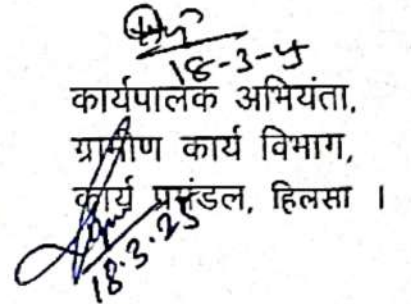 18-3-25
कार्यपालक अभियंता,
ग्रामीण कार्य विभाग,
कार्य प्रमंडल, हिलसा ।
18.3.25